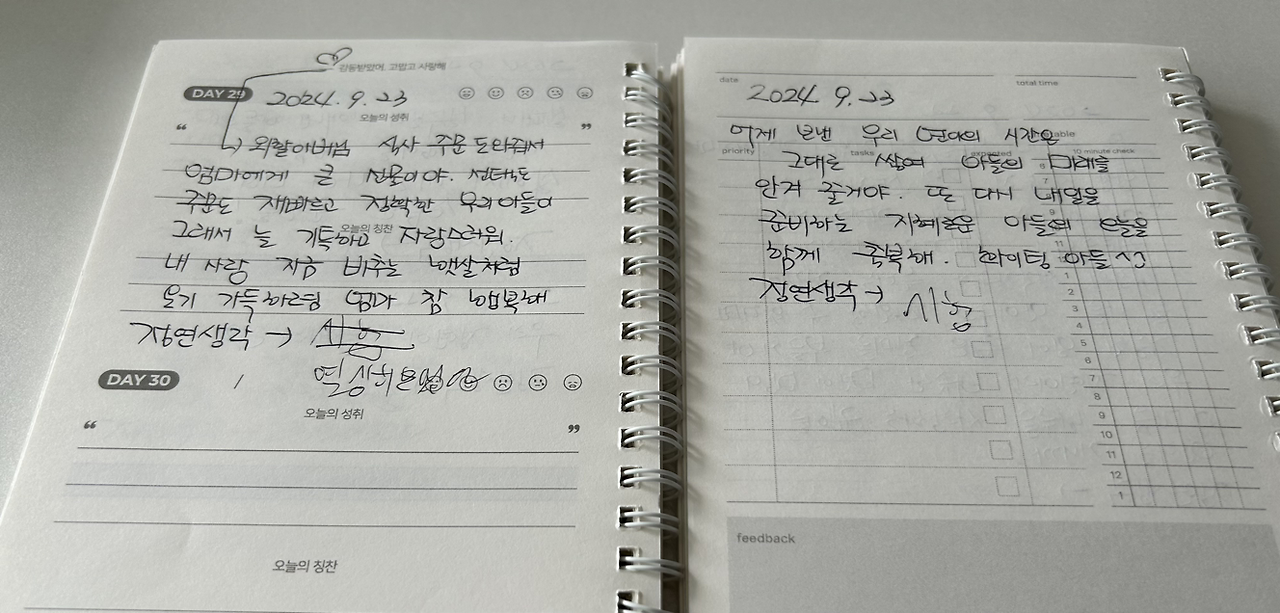 감동받았어. 고맙고 사랑해
DAY 29 2024. 9. 23
오늘의 성취
“ ”
외할아버님 식사 주문 도와줘서
엄마에게 큰 선물이야. 선택도
주문도 재빠르고 정확한 우리 아들이
오늘의 칭찬
그래서 늘 기특하고 자랑스러워.
내 사랑 지금 비추는 햇살처럼
온기 가득하르렴 엄마가 참 행복해
정연생각 → 시흥
DAY 30 /
오늘의 성취
“ ”
오늘의 칭찬
date total time
2024. 9. 23
어제 보낸 우리 연아의 시간은
priority tasks 10 minute check
그대로 쌓여 아들의 미래를
안겨 줄거야. 또 다시 내일을
준비하는 지혜로운 아들의 오늘을
함께 축복해. 화이팅 아들 ^^
정연생각 → 시흥
6
7
9
11
1
2
3
4
5
6
7
8
9
10
11
12
1
feedback